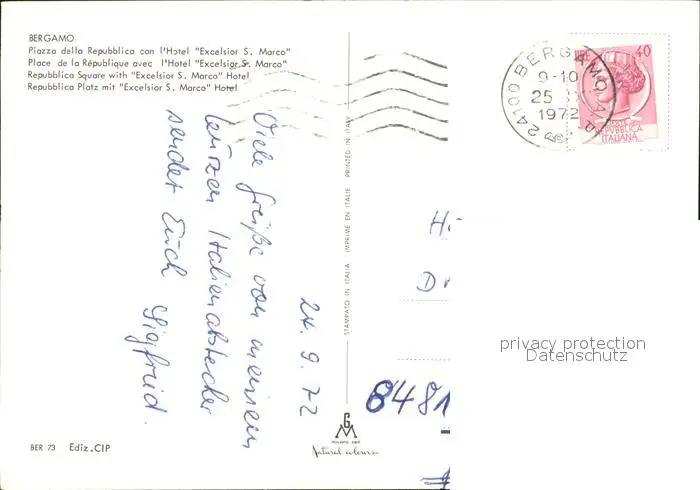 BERGAMO
Piazza della Repubblica con l'Hotel "Excelsior S. Marco"
Place de la République avec l'Hotel "Excelsior S. Marco"
Repubblica Square with "Excelsior S. Marco" Hotel
Repubblica Platz mit "Excelsior S. Marco" Hotel
24100 BERGAMO
9-10
25
1972
40
REPUBBLICA
ITALIANA
24.9.72
Viele Grüße von meinem
kurzen Italienabstecher
sendet Euch Siegfried.
STAMPATO IN ITALIA IMPRIMÉ EN ITALIE PRINTED IN ITALY
H
D
privacy protection
Datenschutz
8481
GM
Natural colours
BER 73 Ediz.CIP